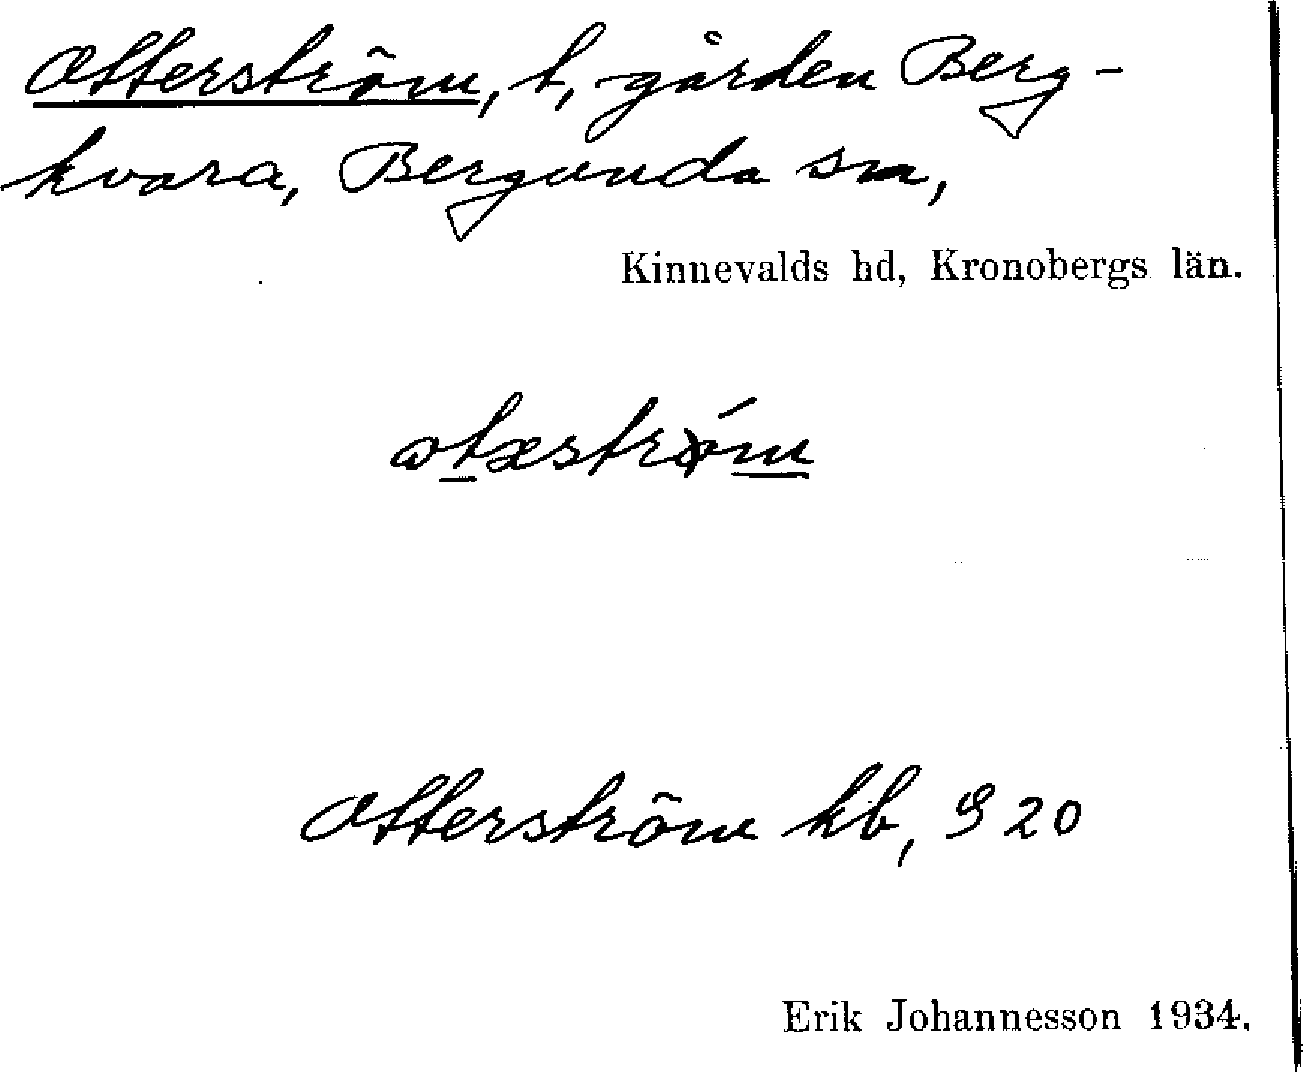 Otterström, t, gården Berg-
kvara, Bergunda sn,
Kinnevalds hd, Kronobergs län.
Otterström kb, S 20
Erik Johannesson 1934.